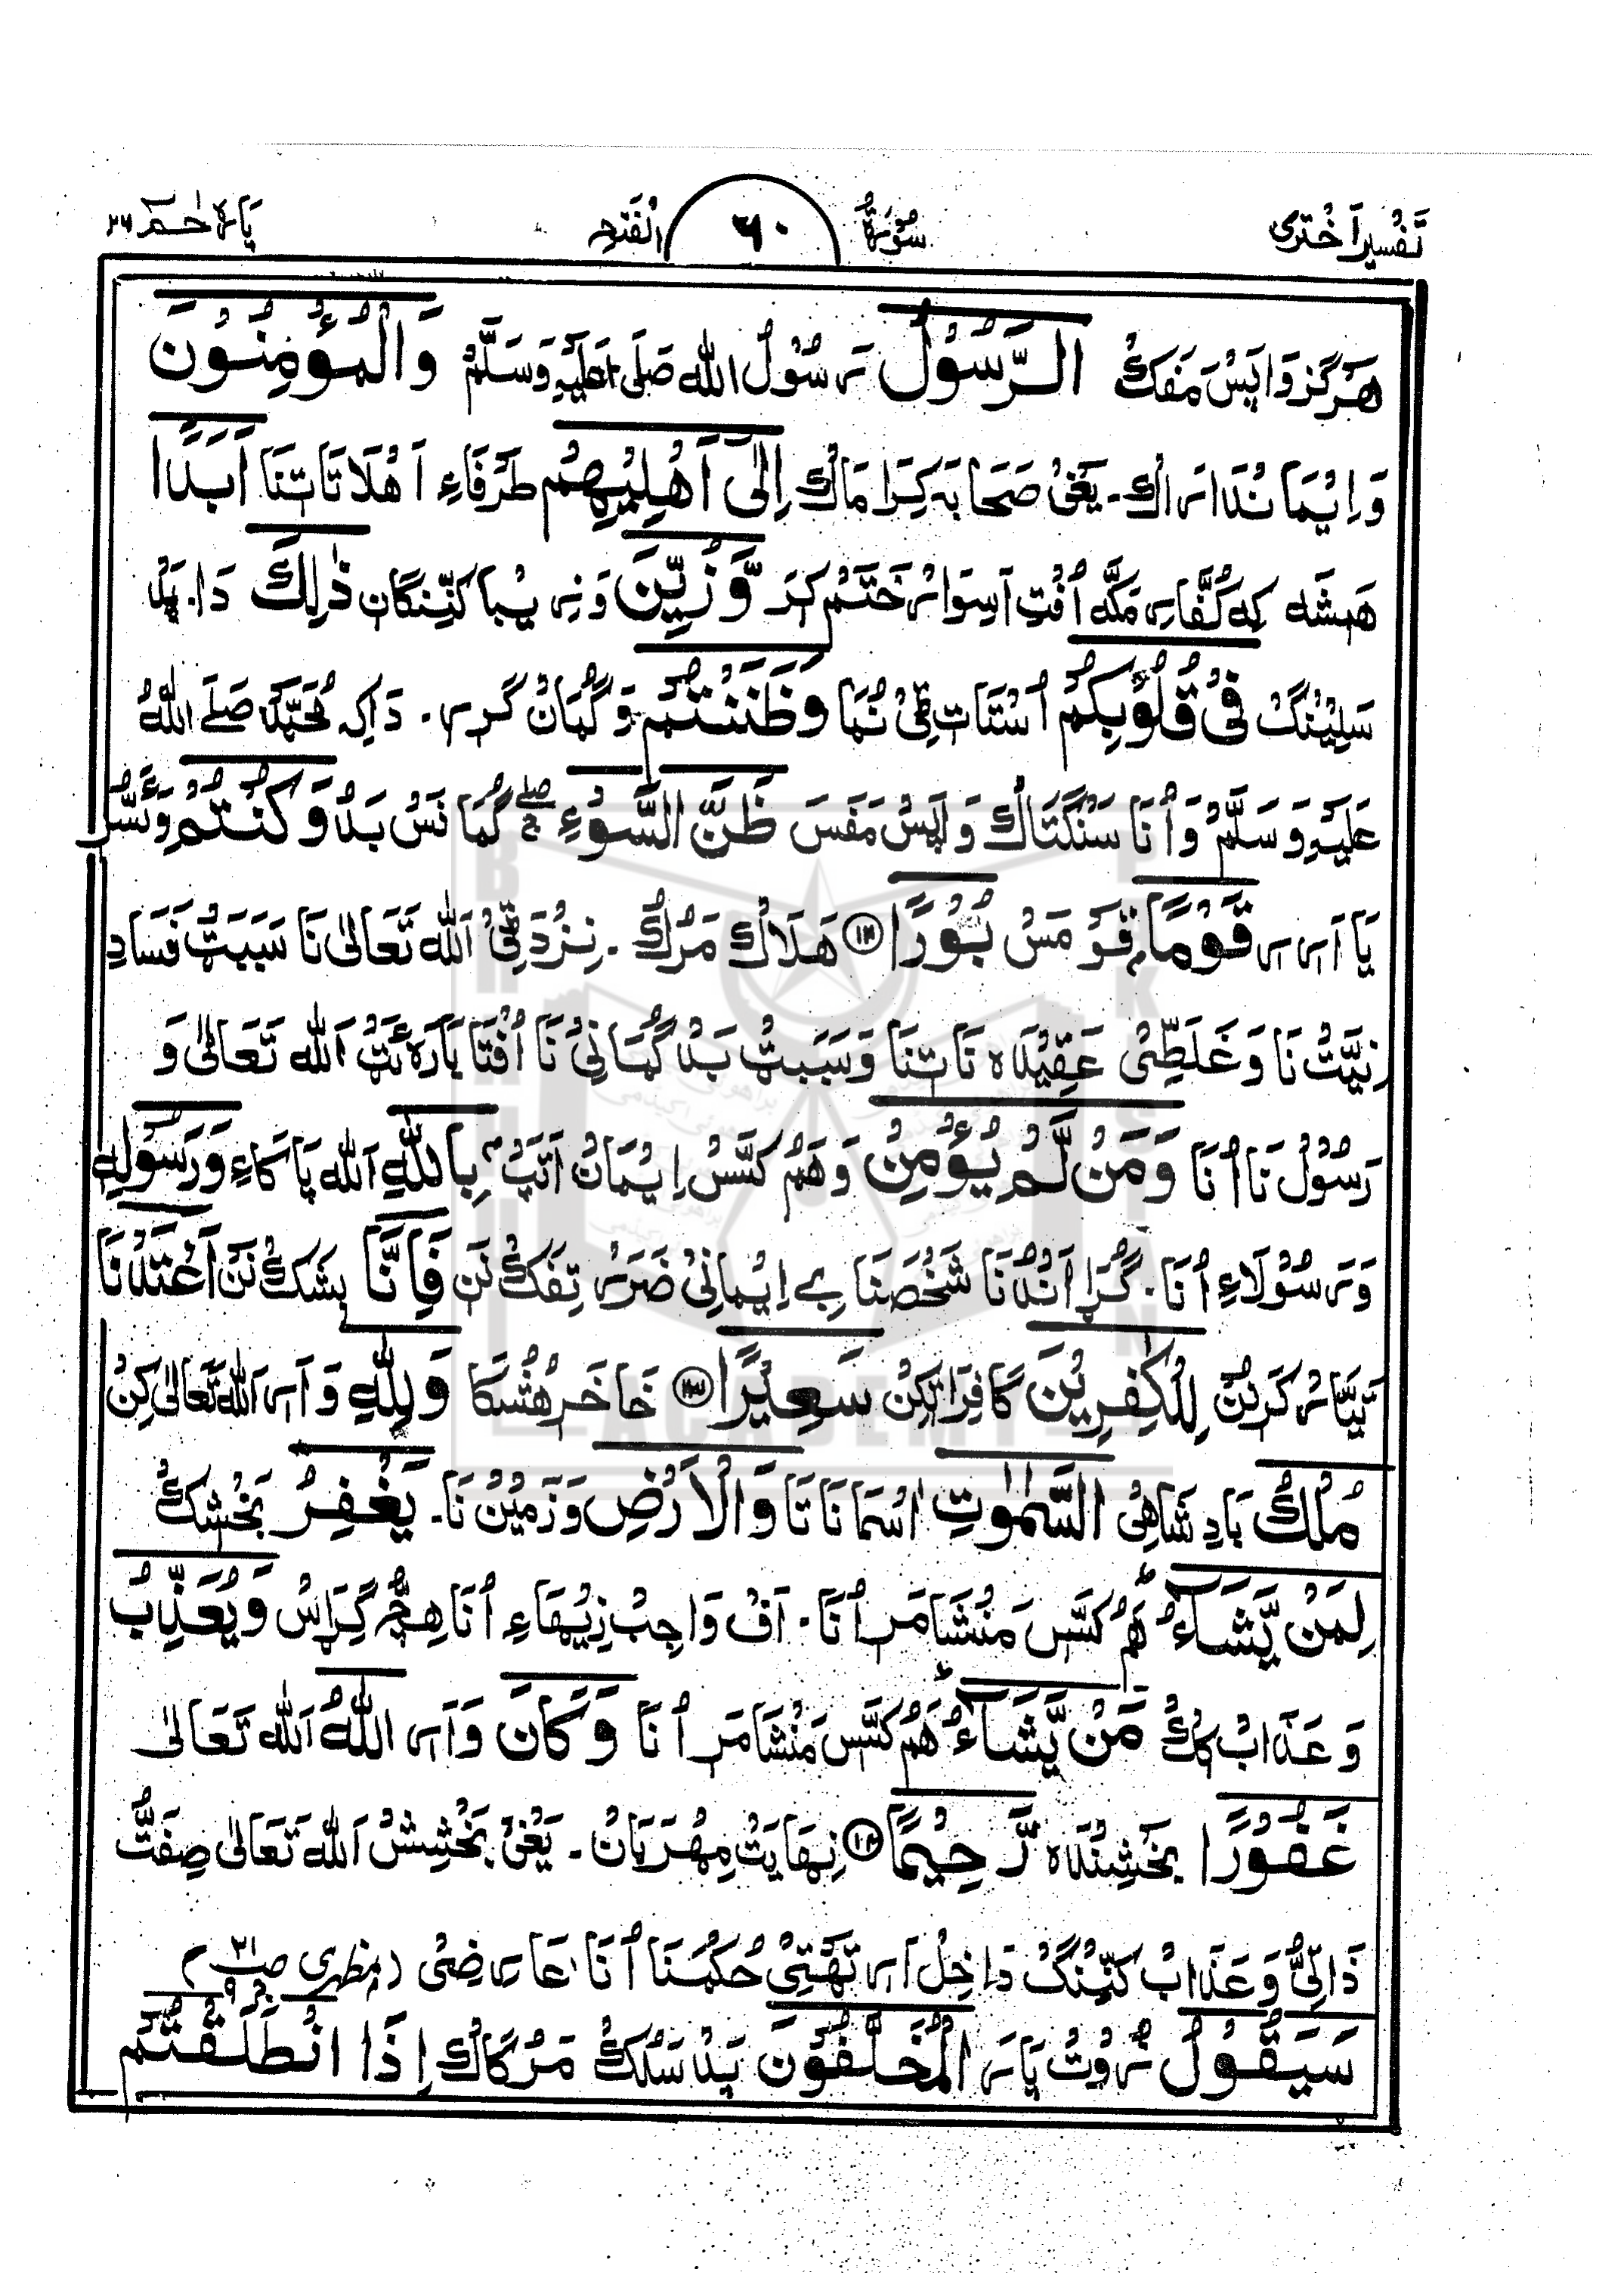 تَفْسِیرِ اَخْتَرِی سُوْرَۃُ ٦٠ اَلْفَتْحِ پَارَہ حٰـمٓ ٢٦
هَرْگِز وَاپَسْ مَفَکْ الرَّسُوْلُ رَسُوْلُ اللّٰه صَلَی اللّٰه عَلَیْهِ وَسَلَّمْ وَالْمُؤْمِنُوْنَ
وَ اِیْمَانْدَارَاکْ ۔ یَعْنِیْ صَحَابَہ کِرَامَاکْ اِلٰٓی اَهْلِیْهِمْ طَرْفَاءِ اَهْلَاتَا تِنَا اَبَدًا
هَمِشَه کِه کُفَّارِ مَکَّه اُفْتِ اَسِوَارْ خَتَمْ کَرَ وَّ زُیِّنَ وَ زِیْبَا کَنِّنْگَان ذٰلِكَ دَا ۔ یَلْ
سَلِیْنْگْ فِیْ قُلُوْبِكُمْ اُسْتَاتِ ٹِیْ نُمَا وَظَنَنْتُمْ وَ گُمَانْ کَرِرِ ۔ دَاکِہ مُحَمَّدْ صَلَے اللّٰهُ
عَلَیْهِ وَسَلَّمْ وَ اُنَا سَنْگَتَاکْ وَاپَسْ مَفَسَ ظَنَّ السَّوْءِ گُمَانَسْ بَدْ وَكُنْتُمْ وَ نُسُّرْ
یَا اَرِرِ قَوْمًا قَوْمَسْ بُوْرًا ۝١٢ هَلَاكْ مَرْكْ ۔ نِزْدَ ٹِیْ اَللّٰه تَعَالٰی نَا سَبَبَٹْ فَسَادِ
نِیَّتْ نَا وَ غَلَطِّیْ عَقِیْدَه نَاتِنَا وَ سَبَبَٹْ بَدْ گُمَانِیْ نَا اُفْتَا بَارَه ئَٹْ اَللّٰه تَعَالٰی وَ
رَسُوْلْ نَا اُنَا وَمَنْ لَّمْ یُؤْمِنْ وَ هَمْ کَسَّسْ اِیْمَانْ اَتَپْ بِاللّٰهِ اَللّٰه پَاكَاءِ وَرَسُوْلِهٖ
وَ رَسُوْلَاءِ اُنَا ۔ گُڑَا اَنْدُنَا شَخْصَنَا بِے اِیْمَانِیْ ضَرَرْ تِفَكْ نَنْ فَاِنَّاۤ بِیشَكْ نَنْ اَعْتَدْنَا
تَیَّارْ کَرِنُنْ لِلْكٰفِرِیْنَ کَافِرَاتِکِنْ سَعِیْرًا ۝١٣ خَاخَرْ هُشُكَا وَلِلّٰهِ وَ اَرِ اَللّٰه تَعَالٰی کِنْ
مُلْكُ بَادِشَاهِیْ السَّمٰوٰتِ اٰسْمَانَاتَا وَالْاَرْضِ وَ زَمِیْنْ نَا ۔ یَغْفِرُ بَخْشِكْ
لِمَنْ یَّشَآءُ هَمْ کَسَّسْ مَنْشَا مَرِ اُنَا ۔ اَفْ وَاجِبْ زِیْهَاءِ اُنَا هِچُّ گِڑَاسْ وَیُعَذِّبُ
وَ عَذَابْ کَكْ مَنْ یَّشَآءُ هَمْ کَسَّسْ مَنْشَا مَرِ اُنَا وَكَانَ وَ اَرِ اللّٰهُ اَللّٰه تَعَالٰی
غَفُوْرًا بَخْشِنْدَه رَّحِیْمًا ۝١٤ نِهَایَتْ مِهْرَبَانْ ۔ یَعْنِیْ بَخْشِشْ اَللّٰه تَعَالٰی صِفَتْ
ذَاتِیْ وَ عَذَابْ کَنِّنْگْ دَاخِلْ اَرِ تَهْتِیْ حُکْمْنَا اُنَا عَارِضِیْ (مظہری صـ٣١ جـ٩)
سَیَقُوْلُ رُوْتْ پَارَ الْمُخَلَّفُوْنَ پَدْ سَلْكْ مَرْكَاكْ اِذَا انْطَلَقْتُمْ
BRAHUI ACADEMY PAKISTAN